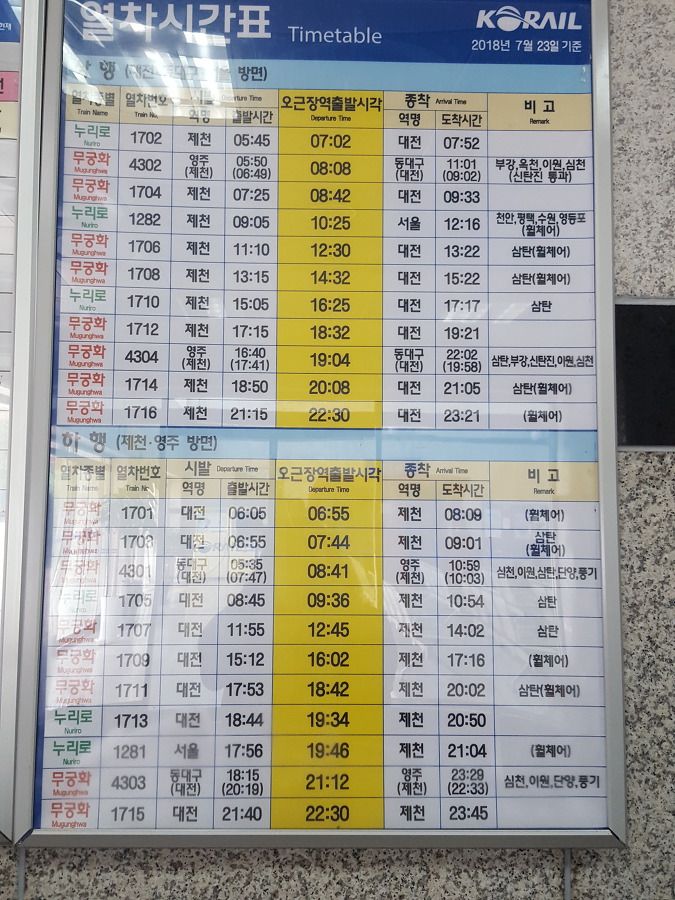 열차시간표 Timetable
KORAIL
2018년 7월 23일 기준
하 행 방면)
열차종별 열차번호 시발 Departure Time 오근장역출발시각 종착 Arrival Time 비 고
Train Name Train No. 역명 출발시간 Departure Time 역명 도착시간 Remark
누리로 Nuriro 1702 제천 05:45 07:02 대전 07:52
무궁화 Mugunghwa 4302 영주 (제천) 05:50 (06:49) 08:08 동대구 (대전) 11:01 (09:02) 부강,옥천,이원,심천 (신탄진 통과)
무궁화 Mugunghwa 1704 제천 07:25 08:42 대전 09:33
누리로 Nuriro 1282 제천 09:05 10:25 서울 12:16 천안,평택,수원,영등포 (휠체어)
무궁화 Mugunghwa 1706 제천 11:10 12:30 대전 13:22 삼탄(휠체어)
무궁화 Mugunghwa 1708 제천 13:15 14:32 대전 15:22 삼탄(휠체어)
누리로 Nuriro 1710 제천 15:05 16:25 대전 17:17 삼탄
무궁화 Mugunghwa 1712 제천 17:15 18:32 대전 19:21
무궁화 Mugunghwa 4304 영주 (제천) 16:40 (17:41) 19:04 동대구 (대전) 22:02 (19:58) 삼탄,부강,신탄진,이원,심천
무궁화 Mugunghwa 1714 제천 18:50 20:08 대전 21:05 삼탄(휠체어)
무궁화 Mugunghwa 1716 제천 21:15 22:30 대전 23:21 (휠체어)
하 행 (제천·영주 방면)
열차종별 열차번호 시발 Departure Time 오근장역출발시각 종착 Arrival Time 비 고
Train Name Train No 역명 출발시간 Departure Time 역명 도착시간 Remark
무궁화 Mugunghwa 1701 대전 06:05 06:55 제천 08:09 (휠체어)
무궁화 Mugunghwa 1703 대전 06:55 07:44 제천 09:01 삼탄 (휠체어)
무궁화 Mugunghwa 4301 동대구 (대전) 05:35 (07:47) 08:41 영주 (제천) 10:59 (10:03) 심천,이원,삼탄,단양,풍기
누리로 Nuriro 1705 대전 08:45 09:36 제천 10:54 삼탄
무궁화 Mugunghwa 1707 대전 11:55 12:45 제천 14:02 삼탄
무궁화 Mugunghwa 1709 대전 15:12 16:02 제천 17:16 (휠체어)
무궁화 Mugunghwa 1711 대전 17:53 18:42 제천 20:02 삼탄(휠체어)
누리로 Nuriro 1713 대전 18:44 19:34 제천 20:50
누리로 Nuriro 1281 서울 17:56 19:46 제천 21:04 (휠체어)
무궁화 Mugunghwa 4303 동대구 (대전) 18:15 (20:19) 21:12 영주 (제천) 23:29 (22:33) 심천,이원,단양,풍기
무궁화 Mugunghwa 1715 대전 21:40 22:30 제천 23:45